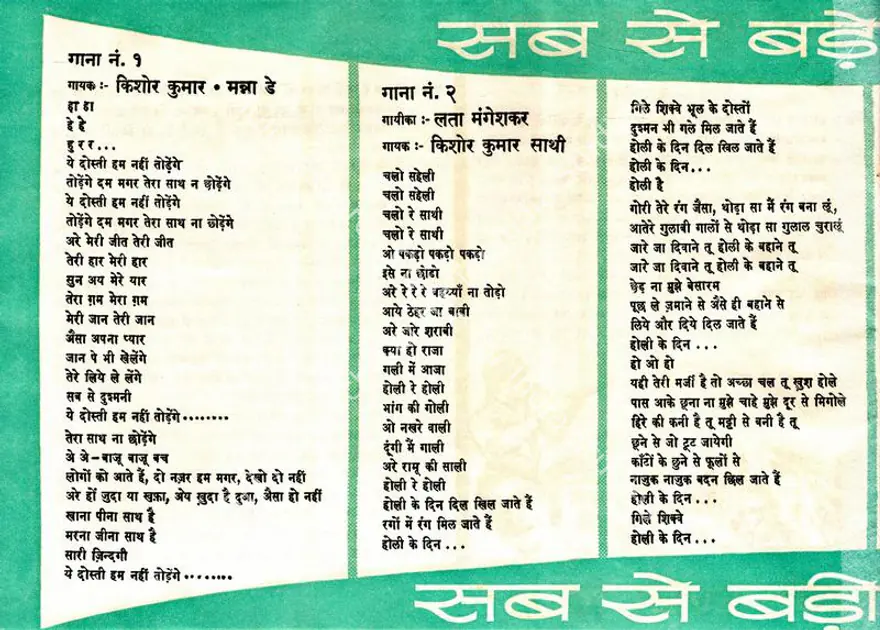 सब से बड़े
गाना नं. १
गायक :- किशोर कुमार • मन्ना डे
हा हा
हे हे
हु र र...
ये दोस्ती हम नहीं तोड़ेंगे
तोड़ेंगे दम मगर तेरा साथ न छोड़ेंगे
ये दोस्ती हम नहीं तोड़ेंगे
तोड़ेंगे दम मगर तेरा साथ ना छोड़ेंगे
अरे मेरी जीत तेरी जीत
तेरी हार मेरी हार
सुन अय मेरे यार
तेरा ग़म मेरा ग़म
मेरी जान तेरी जान
जैसा अपना प्यार
जान पे भी खेलेंगे
तेरे लिये ले लेंगे
सब से दुश्मनी
ये दोस्ती हम नहीं तोड़ेंगे ........
तेरा साथ ना छोड़ेंगे
अे अे-बाजू बाजू बच
लोगों को आते हैं, दो नज़र हम मगर, देखो दो नहीं
अरे हों जुदा या खफ़ा, अेय ख़ुदा है दुआ, अैसा हो नहीं
खाना पीना साथ है
मरना जीना साथ है
सारी ज़िन्दगी
ये दोस्ती हम नहीं तोड़ेंगे ........
गाना नं. २
गायीका :- लता मंगेशकर
गायक :- किशोर कुमार साथी
चलो सहेली
चलो सहेली
चलो रे साथी
चलो रे साथी
ओ पकड़ो पकड़ो पकड़ो
इसे ना छोडो
अरे रे रे रे बइय्याँ ना तोडो
आये ठेहर जा बाबी
अरे जारे शराबी
क्या हो राजा
गली में आजा
होली रे होली
भांग की गोली
ओ नखरे वाली
दूंगी मैं गाली
अरे रामू की साली
होली रे होली
होली के दिन दिल खिल जाते हैं
रंगों में रंग मिल जाते हैं
होली के दिन ...
गिले शिक्वे भूल के दोस्तों
दुश्मन भी गले मिल जाते हैं
होली के दिन दिल खिल जाते हैं
होली के दिन ...
होली है
गोरी तेरे रंग जैसा, थोड़ा सा मैं रंग बना लूं,
आतेरे गुलाबी गालों से थोड़ा सा गुलाल चुरालूं
जारे जा दिवाने तू होली के बहाने तू
जारे जा दिवाने तू होली के बहाने तू
छेड़ ना मुझे बेसारम
पूछ ले ज़माने से अैसे ही बहाने से
लिये और दिये दिल जाते हैं
होली के दिन ...
हो ओ हो
यही तेरी मर्जी है तो अच्छा चल तू खुश होले
पास आके छूना ना मुझे चाहे मुझे दूर से मिगोले
हिरे की कनी है तू मट्टी से बनी है तू
छूने से जो टूट जायेगी
काँटों के छुने से फूलों से
नाज़ुक नाजुक बदन छिल जाते हैं
होली के दिन ...
गिले शिक्वे
होली के दिन ...
सब से बड़ी